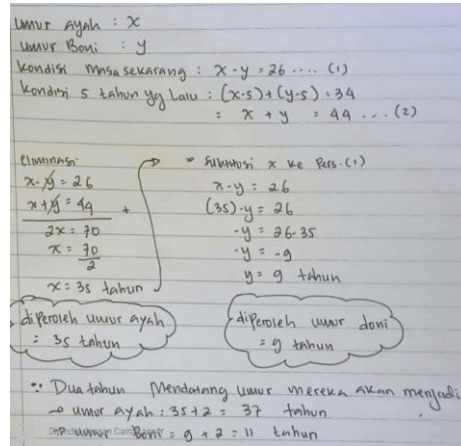 Umur Ayah : x
Umur Boni : y
Kondisi masa sekarang : x - y = 26 .... (1)
Kondisi 5 tahun yg Lalu : (x-5)+(y-5) = 34
= x + y = 44 ... (2)
Eliminasi:
x - y = 26
x + y = 44 +
2x = 70
x = 70
2
x = 35 tahun
Subsitusi x ke Pers. (1)
x - y = 26
(35) - y = 26
-y = 26 - 35
-y = -9
y = 9 tahun
diperoleh umur ayah
= 35 tahun
diperoleh umur doni
= 9 tahun
∴ Dua tahun Mendatang umur mereka akan menjadi
→ umur ayah : 35 + 2 = 37 tahun
umur Boni = 9 + 2 = 11 tahun